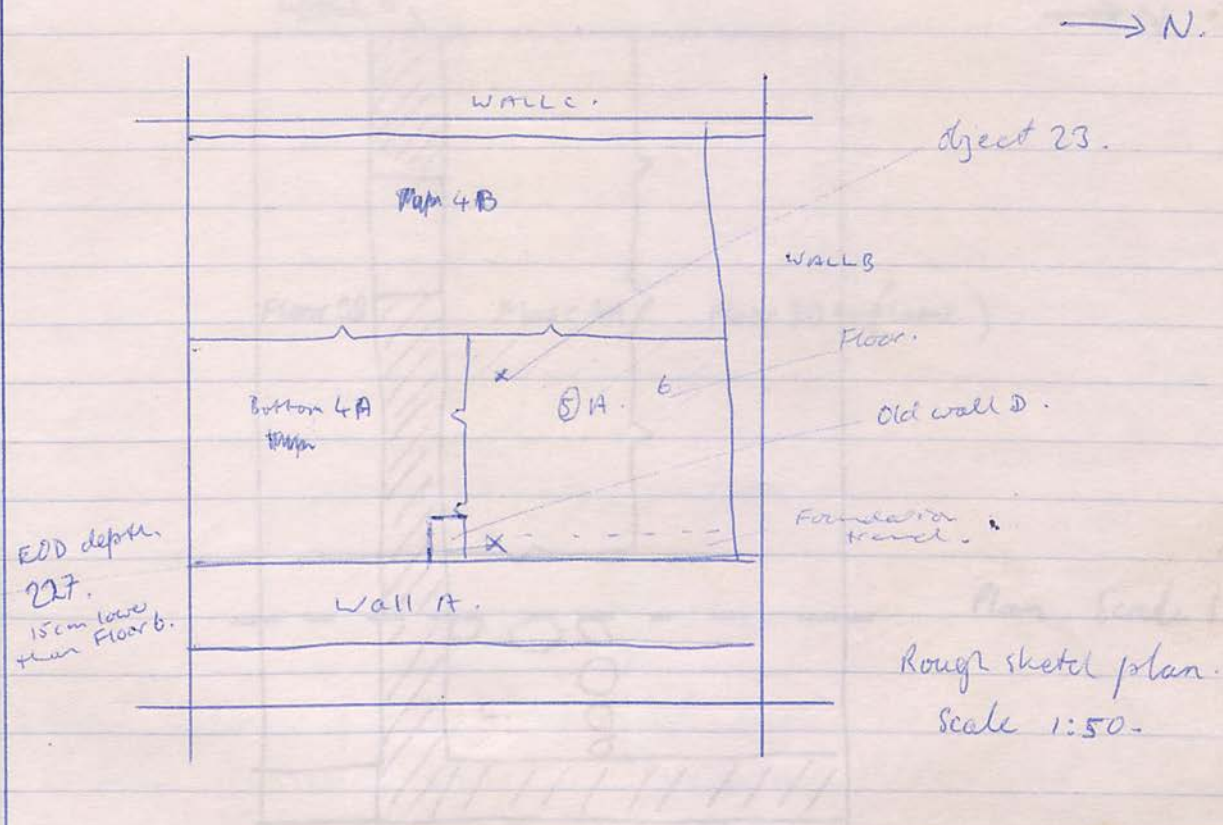 N.
WALL C.
object 23.
4B
WALL B
Floor.
Bottom 4A
5 1A.
6
Old wall D.
Foundation
trench.
EOD depth.
227.
15cm lower
than Floor 6.
Wall A.
Rough sketch plan.
Scale 1:50.